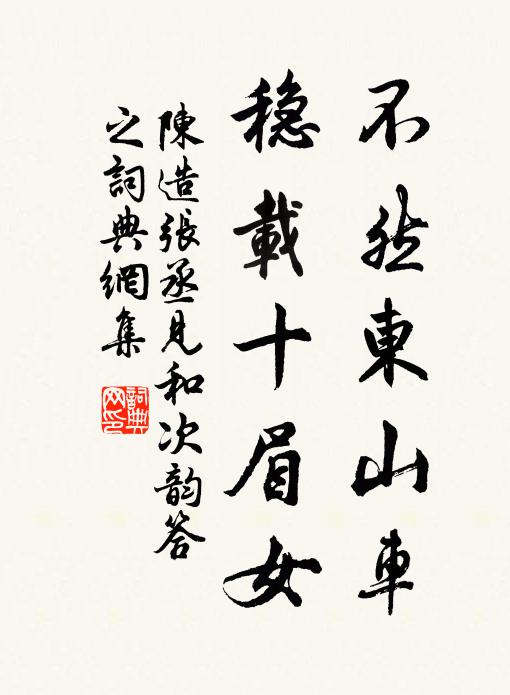 不然東山車
穩載十眉女
陳造張丞見和次韵答
之詞典網集
詞典
网印